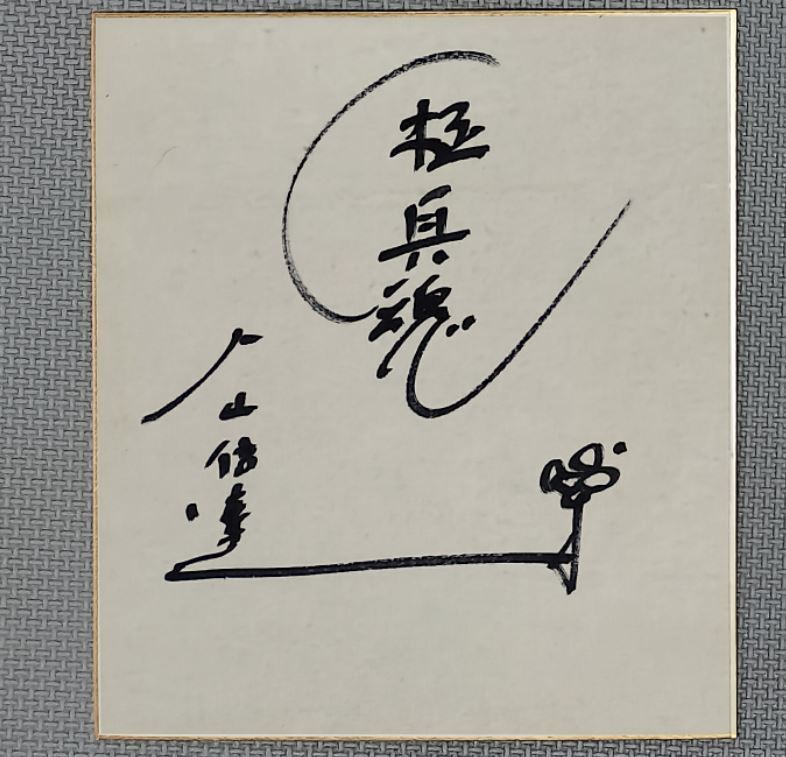 極真魂
大山倍達